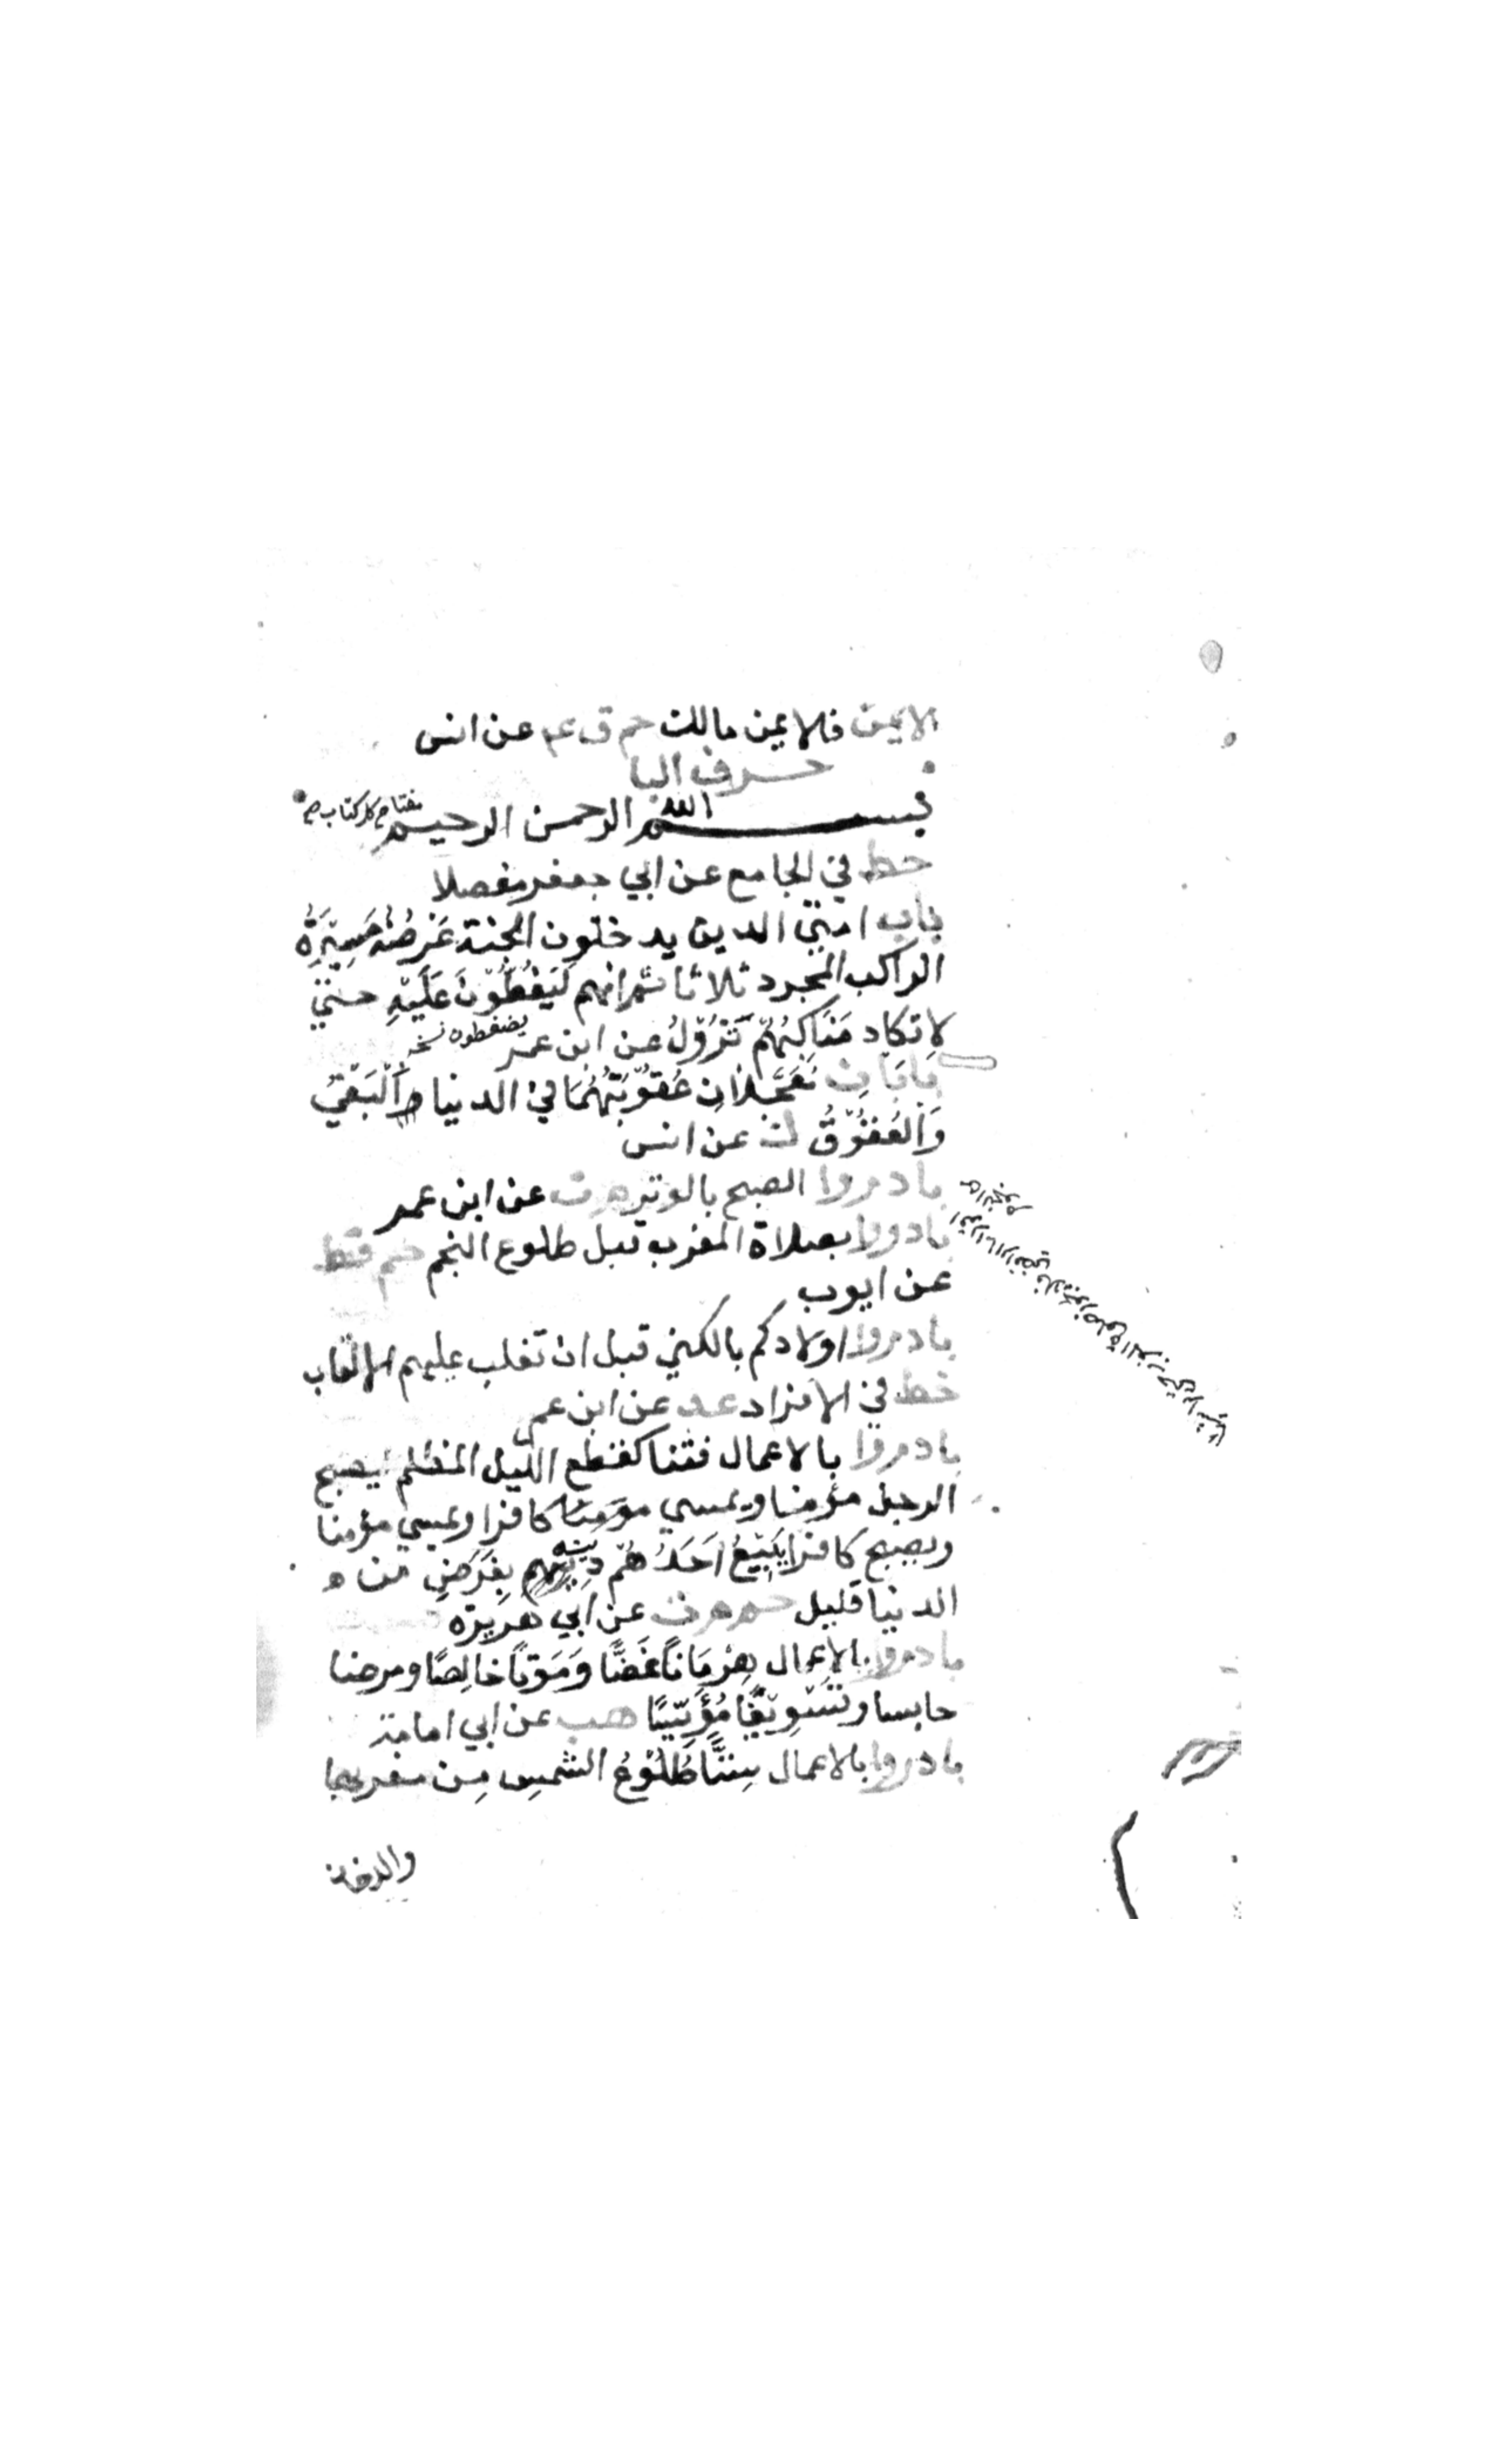 الايمن فلايمن مالك حم ق عد عن انس
حرف البا
بسم الله الرحمن الرحيم مفتاح كل كتاب صح
خط في الجامع عن ابي جعفر مفصلا
باب امتي الدين يدخلون الجنة عَرْضُهُ مَسِيْرَةُ
الراكب المجرد ثلاثا ثم انهم لَيَضُغَطُّوْنَ عَلَيْهِ حتي
لا تكاد مَنَاكِبُهُمْ تَزُوْلُ عن ابن عمر يضغطون نسخه
بَابَانِ تُعَجَّلَانِ عُقُوْبَتُهُمَا في الدنيا اَلْبَغْيُ
وَالْعُقُوْقُ ك عن انس
بادروا الصبح بالوتر م ت عن ابن عمر
بادروا بصلاة المغرب قبل طلوع النجم حم قط
عن ايوب
بادروا اولادكم بالكني قبل ان تغلب عليهم الالقاب
خط في الافراد عد عن ابن عمر
بادروا بالاعمال فتنا كقطع الليل المظلم يصبح
الرجل مؤمنا ويمسي كافرا ويمسي مؤمنا
ويصبح كافرا يَبِيْعُ اَحَدُهُمْ دِيْنَه بِعَرَضٍ من
الدنيا قليل حم م ت عن ابي هريرة
بادروا بالاعمال هِرْمَاناً غَضًّا وَمَوْتًا خَالِصًا ومرضا
حابسا وتَسْوِيْفًا مُؤَيِّسًا هب عن ابي امامة
بادروا بالاعمال سِتًّا طُلُوْعُ الشمسِ مِن مغربها
والدخان